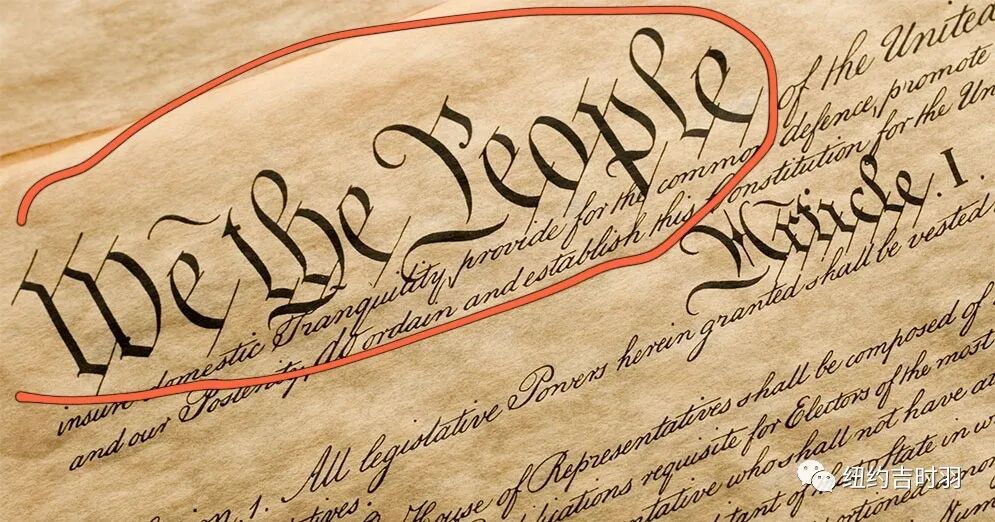 We the People of the United
insure domestic Tranquility, provide for the common defence, promote
and our Posterity, do ordain and establish this Constitution for the Un
Article. I.
1. All legislative Powers herein granted shall be vested
House of Representatives shall be composed of
ications requisite for Electors of the most
ntative who shall not have at
tant of that State in w
纽约吉时羽